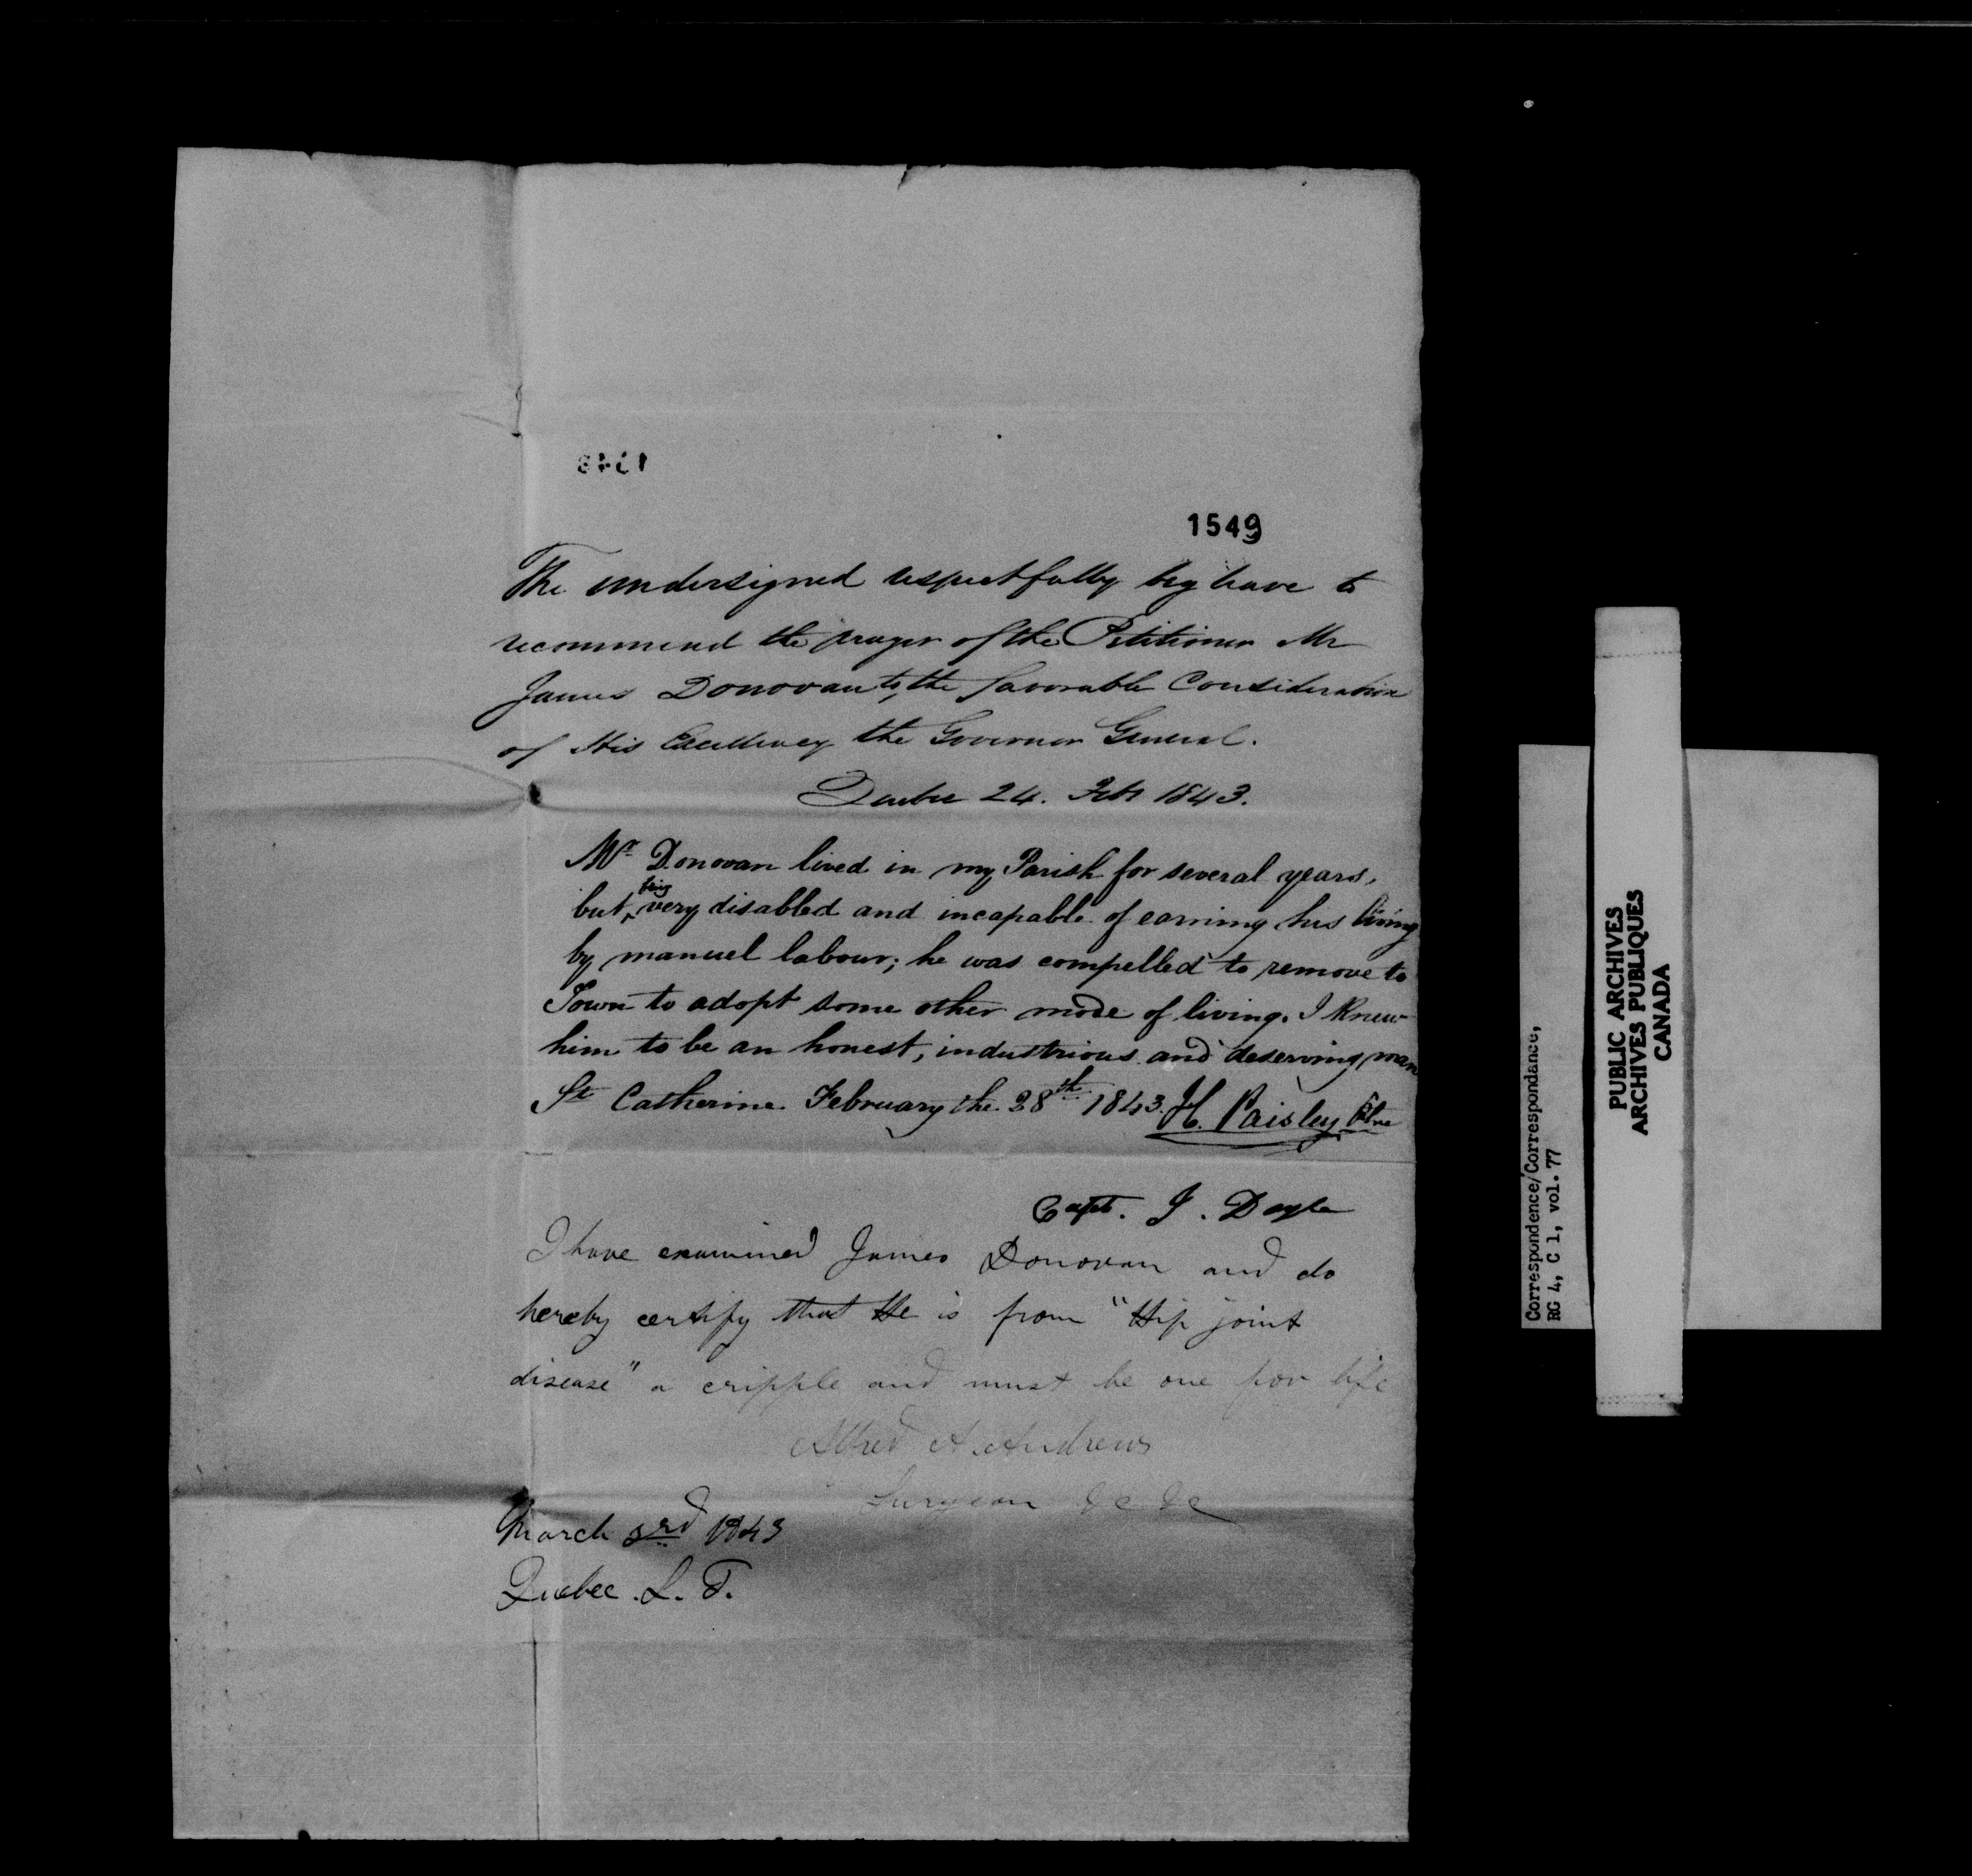 1549
The undersigned respectfully beg leave to
recommend the prayer of the Petitioner Mr
James Donovan to the favorable Consideration
of His Excellency the Governor General.
Quebec 24. Feb 1843.
Mr Donovan lived in my Parish for several years,
but, being very disabled and incapable of earning his living
by manuel labour; he was compelled to remove to
Town to adopt some other mode of living. I knew
him to be an honest, industrious and deserving man
St Catherine February the 28th 1843. H. Paisley Ptre
Capt. J. Doyle
I have examined James Donovan and do
hereby certify that He is from "Hip joint
disease" a cripple and must be one for life
Alfred A. Andrews
Surgeon &c &c
March 3rd 1843
Quebec. L. T.
Correspondence/Correspondance,
RG 4, C 1, vol. 77
PUBLIC ARCHIVES
ARCHIVES PUBLIQUES
CANADA